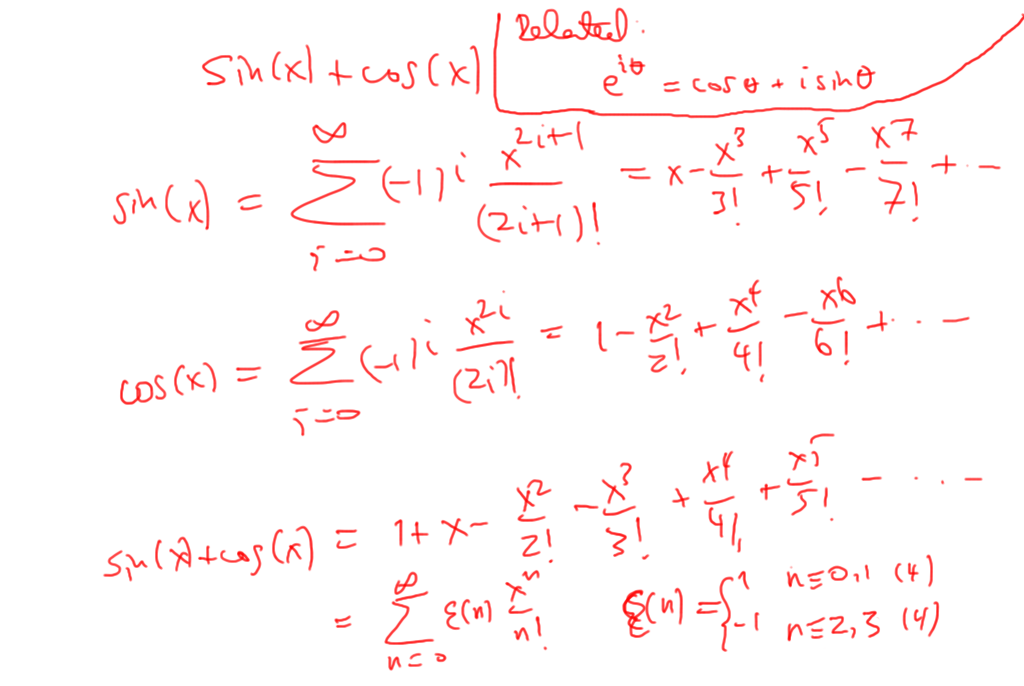 sin(x) + cos(x)
Related:
e^{iθ} = cos θ + i sin θ
sin(x) = \sum_{i=0}^{∞} (-1)^i \frac{x^{2i+1}}{(2i+1)!} = x - \frac{x^3}{3!} + \frac{x^5}{5!} - \frac{x^7}{7!} + ...
cos(x) = \sum_{i=0}^{∞} (-1)^i \frac{x^{2i}}{(2i)!} = 1 - \frac{x^2}{2!} + \frac{x^4}{4!} - \frac{x^6}{6!} + ...
sin(x) + cos(x) = 1 + x - \frac{x^2}{2!} - \frac{x^3}{3!} + \frac{x^4}{4!} + \frac{x^5}{5!} - ...
= \sum_{n=0}^{∞} ε(n) \frac{x^n}{n!} ε(n) = { 1 n ≡ 0,1 (4)
-1 n ≡ 2,3 (4)